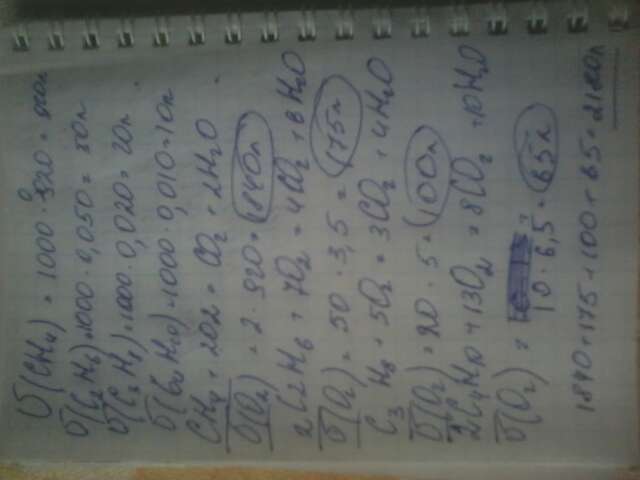 V(CH4) = 1000 · 0,920 = 920л
V(C2H6) = 1000 · 0,050 = 50л
V(C3H8) = 1000 · 0,020 = 20л
V(C4H10) = 1000 · 0,010 = 10л
CH4 + 2O2 = CO2 + 2H2O
V(O2) = 2 · 920 = 1840л
2C2H6 + 7O2 = 4CO2 + 6H2O
V(O2) = 50 · 3,5 = 175л
C3H8 + 5O2 = 3CO2 + 4H2O
V(O2) = 20 · 5 = 100л
2C4H10 + 13O2 = 8CO2 + 10H2O
V(O2) = 10 · 6,5 = 65л
1840 + 175 + 100 + 65 = 2180л